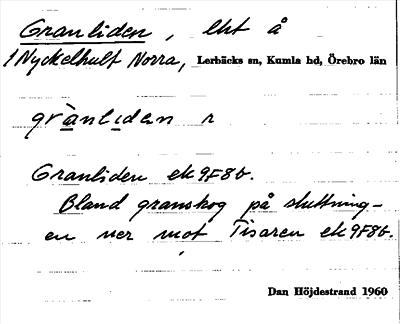 Granliden, lht å
1 Nyckelhult Norra, Lerbäcks sn, Kumla hd, Örebro län
grànlıdan r
Granliden ek 9F8b.
Bland granskog på sluttning-
en ner mot Tisaren ek 9F8b.
Dan Höjdestrand 1960